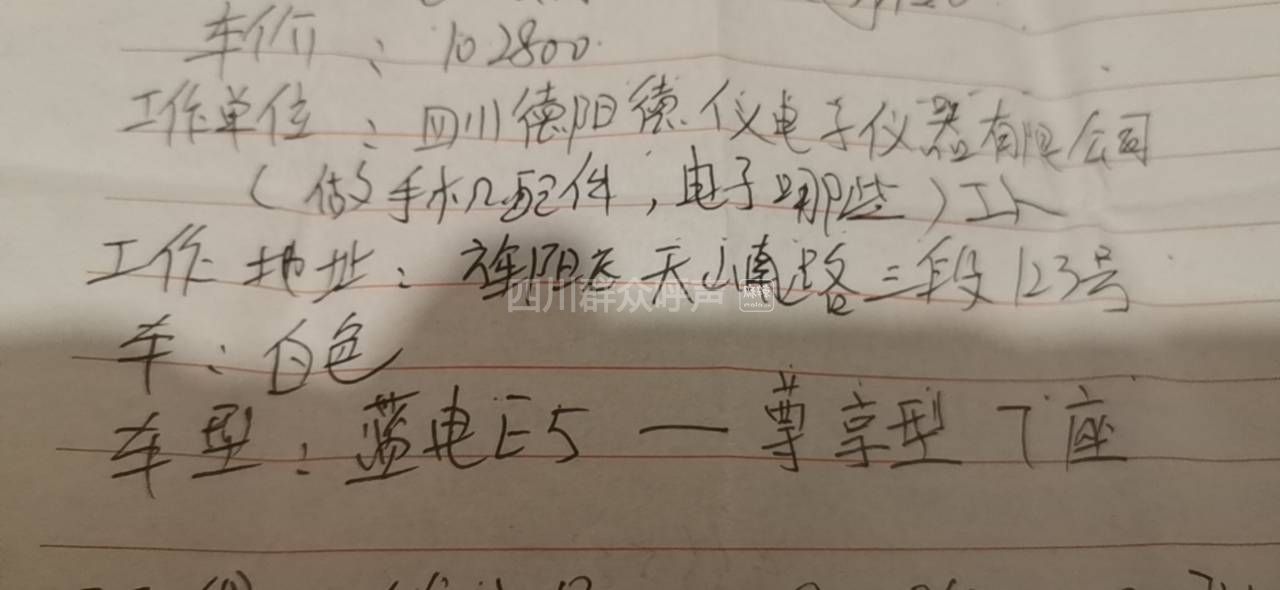 车价：102800
工作单位：四川德阳德仪电子仪器有限公司
（做手机配件，电子那些）工人
工作地址：旌阳区天山南路三段123号
四川群众呼声
车：白色
车型：蓝电E5 — 尊享型 7座